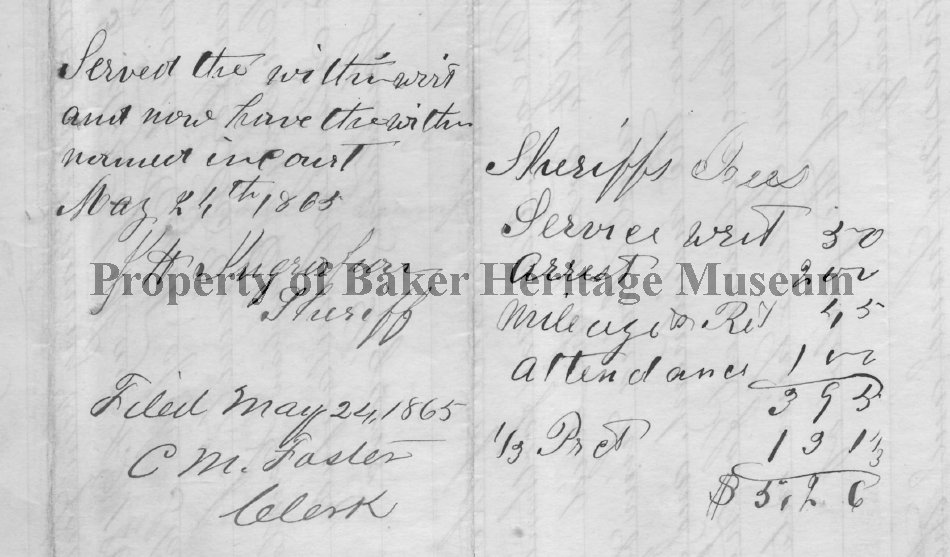 Served the within writ
and now have the within
named in court
May 24th 1865
Sheriff
Filed May 24, 1865
C M. Foster
Clerk
Sheriffs Fees
Service writ 50
Arrest 2 00
Mileage & Ret 45
Attendance 1 00
3 95
1/3 Pret 1 31 1/3
$ 5.26
Property of Baker Heritage Museum